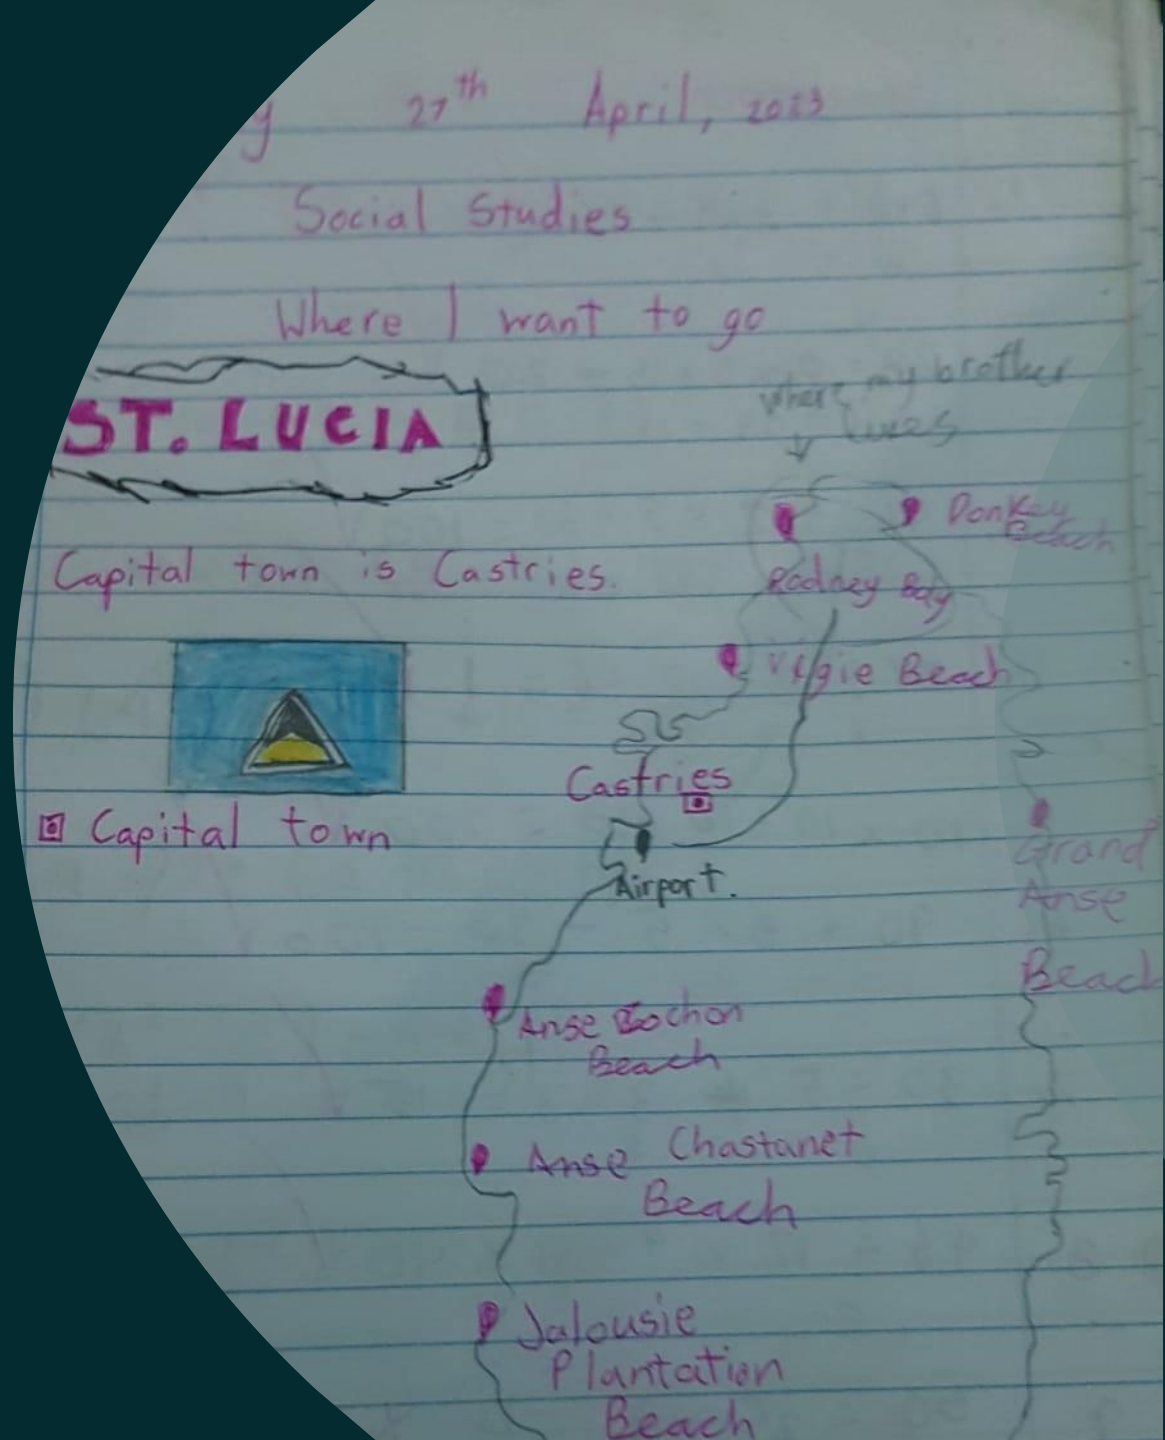 27th April, 2023
Social Studies
Where I want to go
ST. LUCIA
where my brother
lives
Donkey
Beach
Capital town is Castries.
Rodney Bay
Vigie Beach
Castries
Capital town
Airport.
Grand
Anse
Beach
Anse Cochon
Beach
Anse Chastanet
Beach
Jalousie
Plantation
Beach